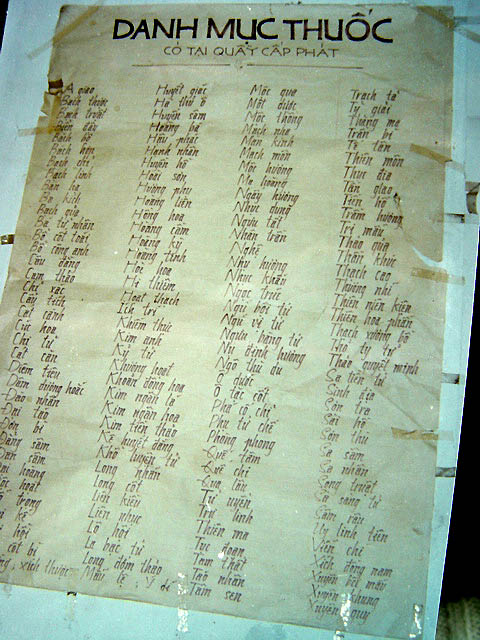 DANH MỤC THUỐC
CÓ TẠI QUẦY CẤP PHÁT
A giao
Bạch thược
Bạch truật
Biển đậu
Bạch chỉ
Bạch linh
Bán hạ
Ba kích
Bạch quả
Bá tử nhân
Bồ công anh
Câu đằng
Cam thảo
Chỉ xác
Cẩu tích
Cát cánh
Cúc hoa
Chi tử
Cát căn
Diêm tiêu
Dâm dương hoắc
Đào nhân
Đại táo
Đảng sâm
Đan sâm
Huyết giác
Hà thủ ô
Huyền sâm
Hoàng bá
Hậu phác
Hạnh nhân
Huyền hồ
Hoài sơn
Hương phụ
Hoàng liên
Hồng hoa
Hoàng cầm
Hoàng kỳ
Hoàng tinh
Hòe hoa
Hoạt thạch
Ích trí
Khiếm thực
Kim anh
Kỷ tử
Khương hoạt
Khoản đông hoa
Kim ngân hoa
Kim tiền thảo
Kê huyết đằng
Khổ luyện tử
Long nhãn
Long cốt
Liên kiều
Liên nhục
Lô hội
La bạc tử
Long đởm thảo
Mộc qua
Một dược
Mộc thông
Mạch nha
Mạn kinh
Mạch môn
Mộc hương
Ma hoàng
Ngải hương
Nhục dung
Ngưu tất
Nhân trần
Nghệ
Nhũ hương
Nhục khấu
Ngọc trúc
Ngũ bội tử
Ngũ vị tử
Ngưu bàng tử
Nụ đinh hương
Ngô thù du
Ô dược
Ô tặc cốt
Phá cố chỉ
Phụ tử chế
Phòng phong
Quế tâm
Quế chi
Qua lâu
Tử uyển
Trư linh
Thiên ma
Tục đoạn
Tam thất
Táo nhân
Tâm sen
Trạch tả
Tỳ giải
Thăng ma
Trần bì
Tế tân
Thiên môn
Thục địa
Tần giao
Tiền hồ
Trầm hương
Tri mẫu
Thảo quả
Thần khúc
Thạch cao
Thương nhĩ
Thiên niên kiện
Thiên hoa phấn
Thạch xương bồ
Thảo quyết minh
Sa tiền tử
Sinh địa
Sơn tra
Sài hồ
Sơn thù
Sa sâm
Sa nhân
Sang truật
Uy linh tiên
Viễn chí
Xích đồng nam
Xuyên bối mẫu
Xuyên khung
Xuyên quy